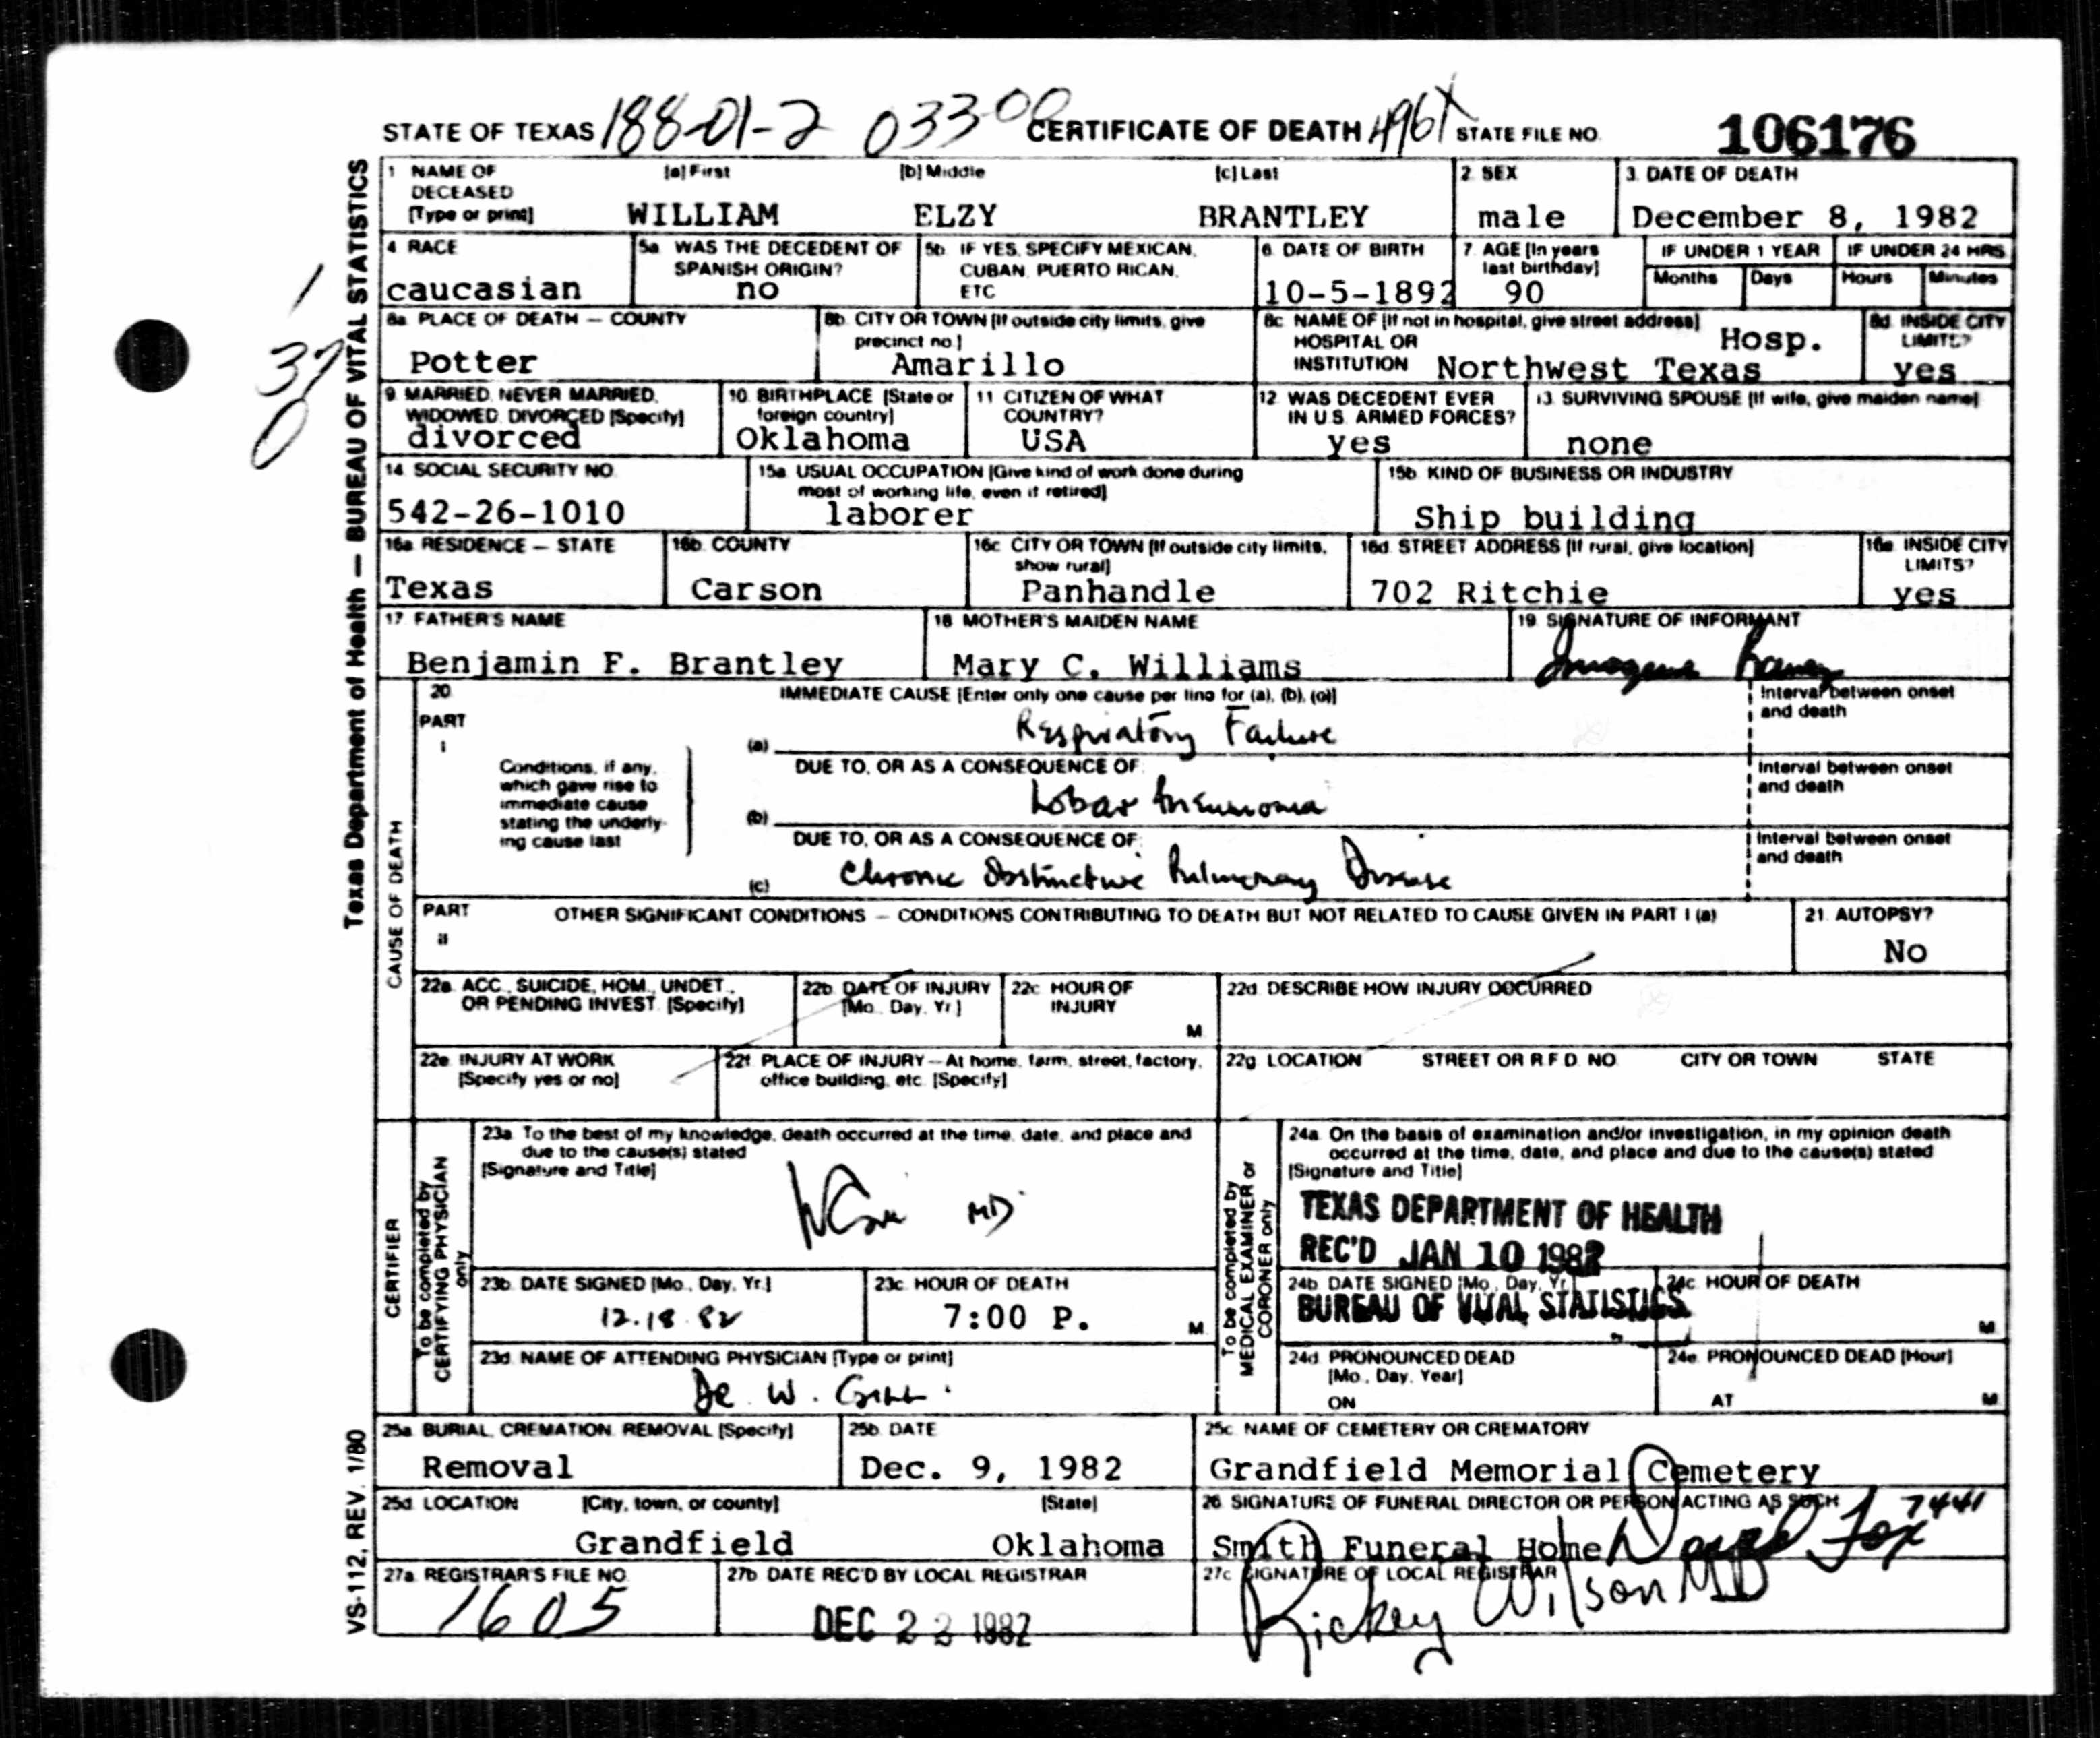 STATE OF TEXAS 188-01-2 033-00 CERTIFICATE OF DEATH 496X STATE FILE NO. 106176
Texas Department of Health — BUREAU OF VITAL STATISTICS
1 NAME OF DECEASED [Type or print] [a] First [b] Middle [c] Last
WILLIAM ELZY BRANTLEY
2. SEX
male
3. DATE OF DEATH
December 8, 1982
4. RACE
caucasian
5a. WAS THE DECEDENT OF SPANISH ORIGIN?
no
5b. IF YES, SPECIFY MEXICAN, CUBAN, PUERTO RICAN, ETC
6. DATE OF BIRTH
10-5-1892
7. AGE [In years last birthday]
90
IF UNDER 1 YEAR
Months Days
IF UNDER 24 HRS
Hours Minutes
8a. PLACE OF DEATH — COUNTY
Potter
8b. CITY OR TOWN [If outside city limits, give precinct no.]
Amarillo
8c. NAME OF [If not in hospital, give street address] HOSPITAL OR INSTITUTION
Northwest Texas Hosp.
8d. INSIDE CITY LIMITS?
yes
9. MARRIED, NEVER MARRIED, WIDOWED, DIVORCED [Specify]
divorced
10. BIRTHPLACE [State or foreign country]
Oklahoma
11. CITIZEN OF WHAT COUNTRY?
USA
12. WAS DECEDENT EVER IN U.S. ARMED FORCES?
yes
13. SURVIVING SPOUSE [If wife, give maiden name]
none
14. SOCIAL SECURITY NO.
542-26-1010
15a. USUAL OCCUPATION [Give kind of work done during most of working life, even if retired]
laborer
15b. KIND OF BUSINESS OR INDUSTRY
Ship building
16a. RESIDENCE — STATE
Texas
16b. COUNTY
Carson
16c. CITY OR TOWN [If outside city limits, show rural]
Panhandle
16d. STREET ADDRESS [If rural, give location]
702 Ritchie
16e. INSIDE CITY LIMITS?
yes
17. FATHER'S NAME
Benjamin F. Brantley
18. MOTHER'S MAIDEN NAME
Mary C. Williams
19. SIGNATURE OF INFORMANT
Imogene
CAUSE OF DEATH
20. PART I
IMMEDIATE CAUSE [Enter only one cause per line for (a), (b), (c)]
Conditions, if any, which gave rise to immediate cause stating the underlying cause last
(a) Respiratory Failure
Interval between onset and death
DUE TO, OR AS A CONSEQUENCE OF:
(b) Lobar Pneumonia
Interval between onset and death
DUE TO, OR AS A CONSEQUENCE OF:
(c) Chronic Obstructive Pulmonary Disease
Interval between onset and death
PART II
OTHER SIGNIFICANT CONDITIONS — CONDITIONS CONTRIBUTING TO DEATH BUT NOT RELATED TO CAUSE GIVEN IN PART I (a)
21. AUTOPSY?
No
22a. ACC., SUICIDE, HOM., UNDET., OR PENDING INVEST. [Specify]
22b. DATE OF INJURY [Mo., Day, Yr.]
22c. HOUR OF INJURY
M.
22d. DESCRIBE HOW INJURY OCCURRED
22e. INJURY AT WORK [Specify yes or no]
22f. PLACE OF INJURY — At home, farm, street, factory, office building, etc. [Specify]
22g. LOCATION STREET OR R.F.D. NO. CITY OR TOWN STATE
CERTIFIER
To be completed by CERTIFYING PHYSICIAN only
23a. To the best of my knowledge, death occurred at the time, date, and place and due to the cause(s) stated
[Signature and Title]
MD
23b. DATE SIGNED [Mo., Day, Yr.]
12.18.82
23c. HOUR OF DEATH
7:00 P. M.
23d. NAME OF ATTENDING PHYSICIAN [Type or print]
Dr. W. Gill.
To be completed by MEDICAL EXAMINER or CORONER only
24a. On the basis of examination and/or investigation, in my opinion death occurred at the time, date, and place and due to the cause(s) stated
[Signature and Title]
TEXAS DEPARTMENT OF HEALTH
REC'D JAN 10 1983
BUREAU OF VITAL STATISTICS
24b. DATE SIGNED [Mo., Day, Yr.]
24c. HOUR OF DEATH
M.
24d. PRONOUNCED DEAD [Mo., Day, Year]
ON
24e. PRONOUNCED DEAD [Hour]
AT M.
25a. BURIAL, CREMATION, REMOVAL [Specify]
Removal
25b. DATE
Dec. 9, 1982
25c. NAME OF CEMETERY OR CREMATORY
Grandfield Memorial Cemetery
25d. LOCATION [City, town, or county] [State]
Grandfield Oklahoma
26. SIGNATURE OF FUNERAL DIRECTOR OR PERSON ACTING AS SUCH
Smith Funeral Home David Fox 7441
27a. REGISTRAR'S FILE NO.
1605
27b. DATE REC'D BY LOCAL REGISTRAR
DEC 22 1982
27c. SIGNATURE OF LOCAL REGISTRAR
Rickey Wilson MD
VS-112, REV. 1/80